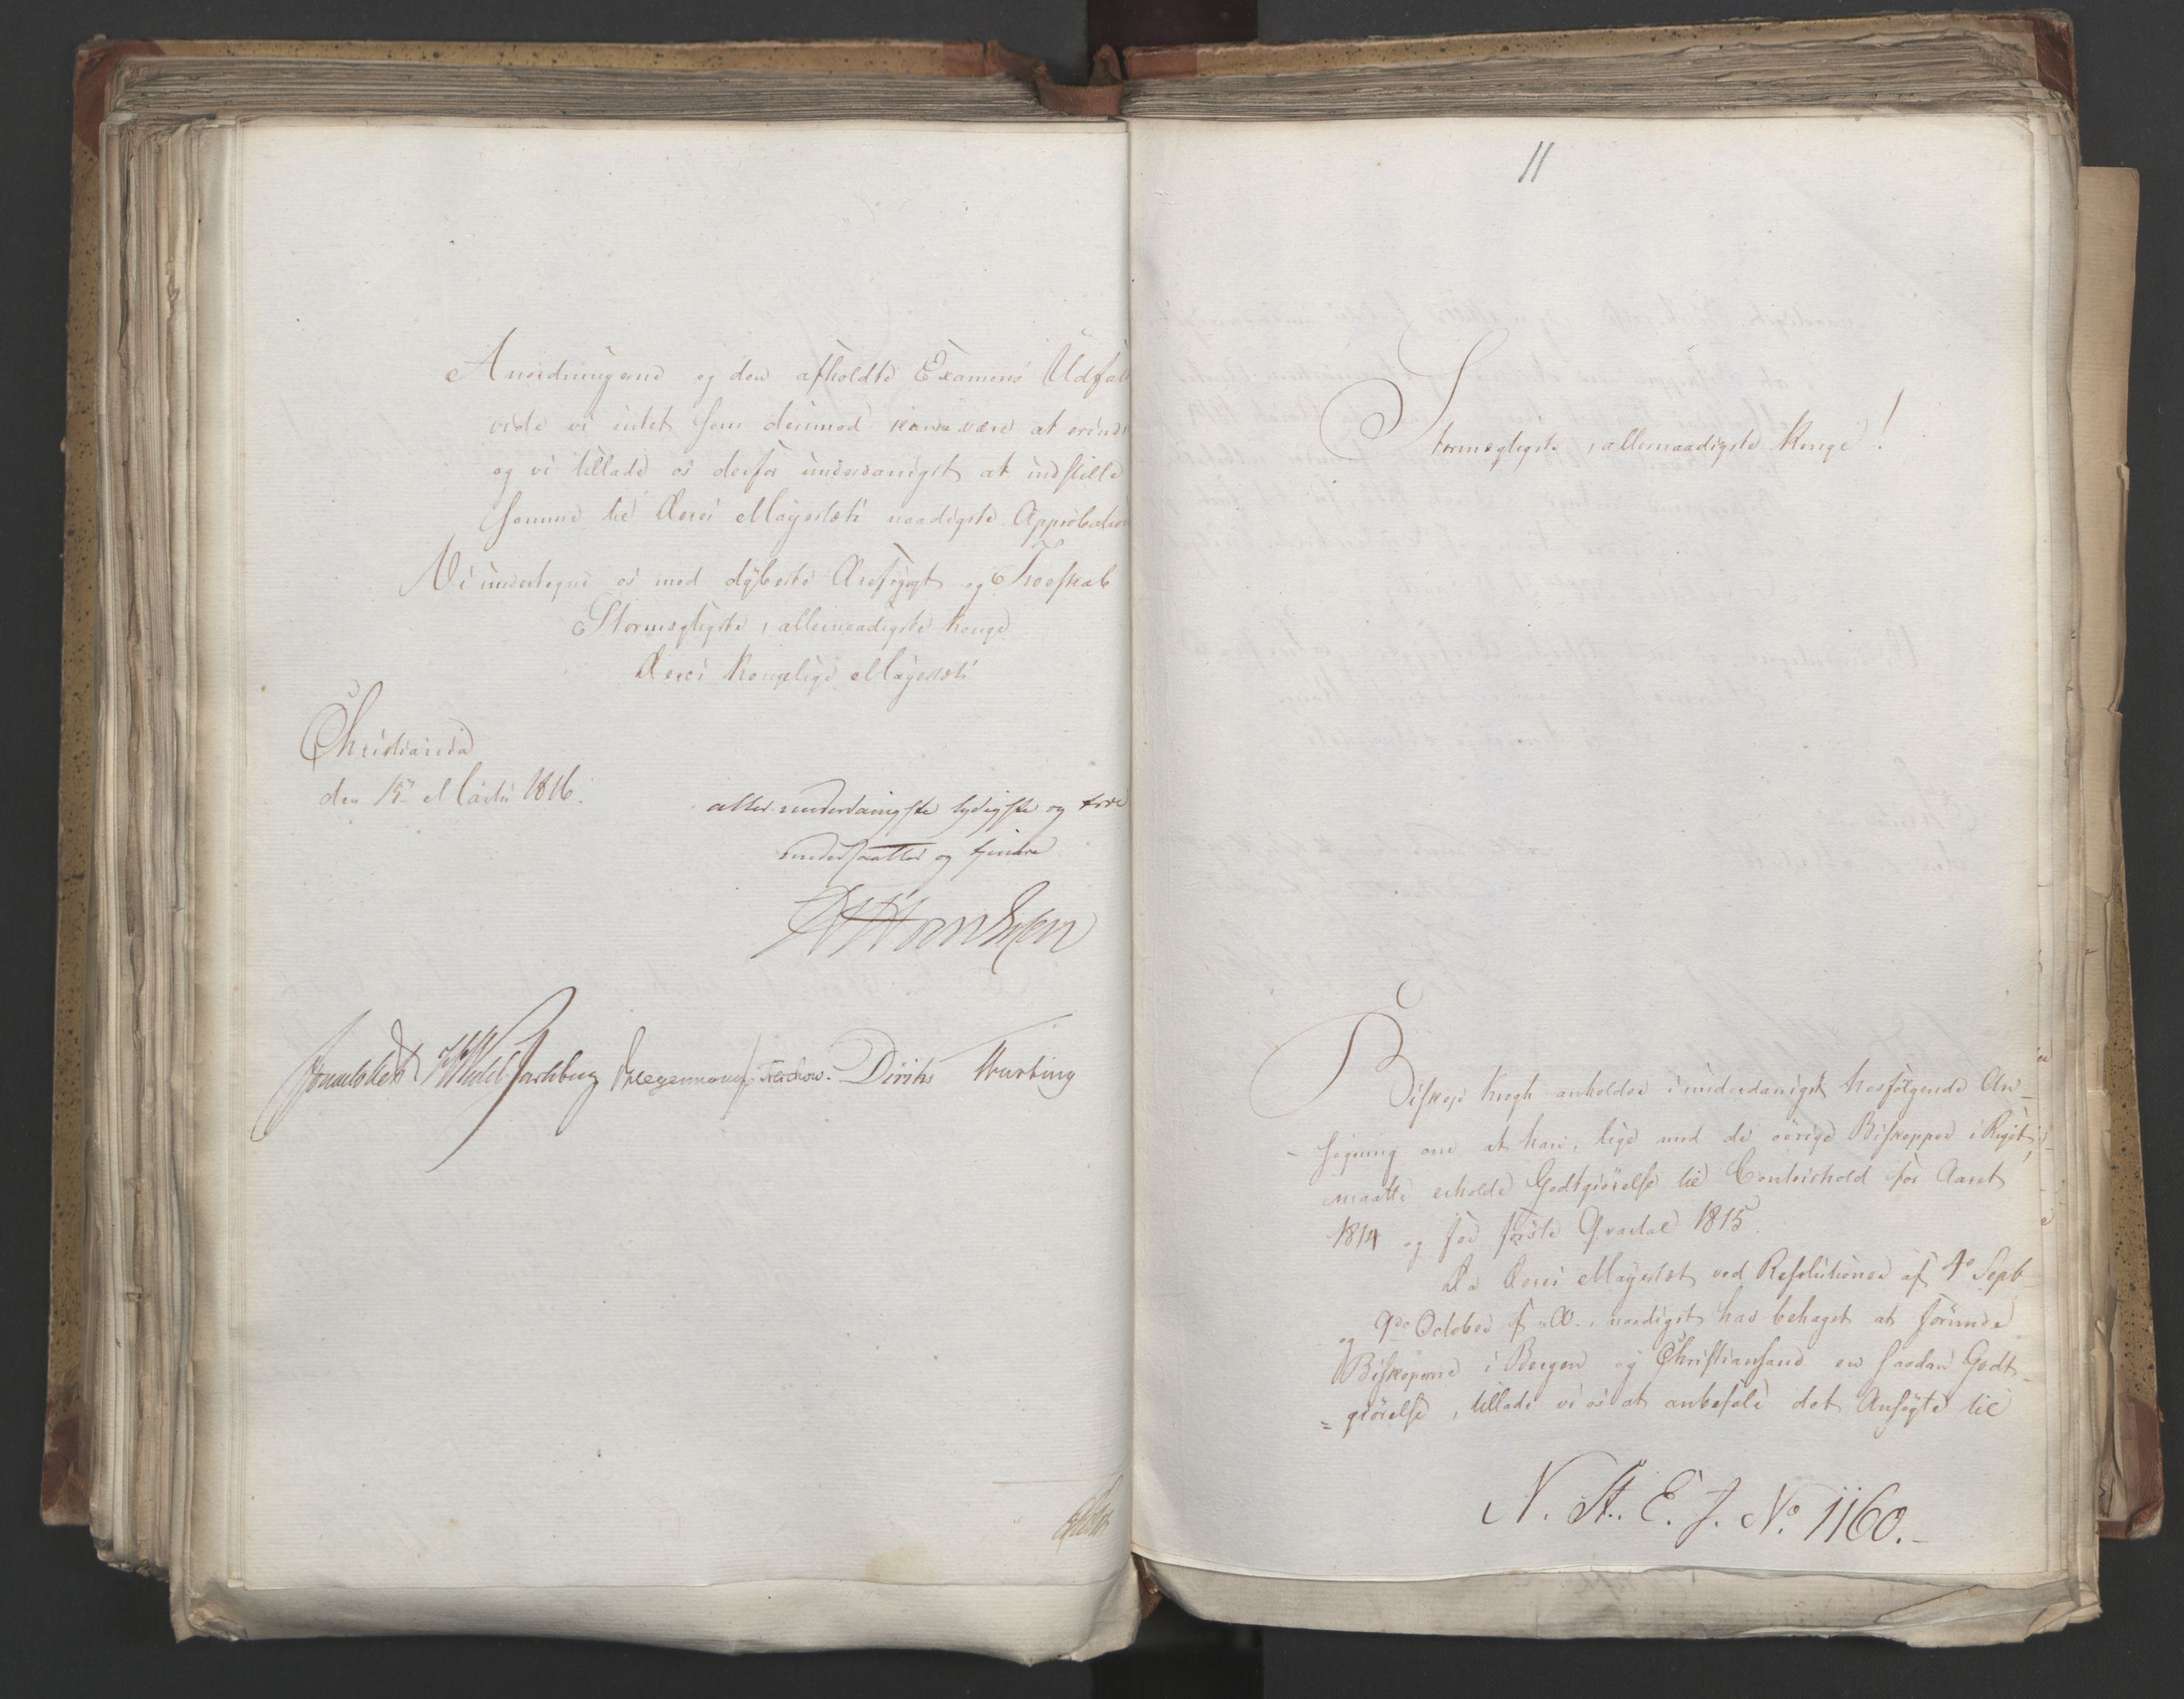 Anordningerne og den afholdte Examens Udfald
vide vi intet som derimod kunde være at erindre
og vi tillade os derfor underdanigst at indstille
samme til Deres Majestæts naadigste Approbation
Vi undertegne os med dybeste Ærefrygt og Troeskab
Stormægtigste, allernaadigste Konge
Deres Kongelige Majestæts
Christiania
den 15 Martii 1816.
allerunderdanigste lydigste og troe
undersaatter og tjenere
Sommerfeldt Wedel Jarlsberg Hegermann Treschow. Diriks Thurting
11
Stormægtigste, allernaadigste Konge!
Biskop Krogh anholder i underdanigst hosfølgende An-
- søgning om at han, lige med de øvrige Biskopper i Riget,
maatte erholde Godtgiørelse til Contoirhold for Aaret
1814 og for første Qvartal 1815.
Da Deres Majestæt ved Resolutioner af 4de Septb
og 9de October f. A., naadigst har behaget at forunde
Biskoperne i Bergen og Christiansand en saadan Godt-
= giørelse, tillade vi os at anbefale det Ansøgte til
N. St. E. J. No. 1160.-